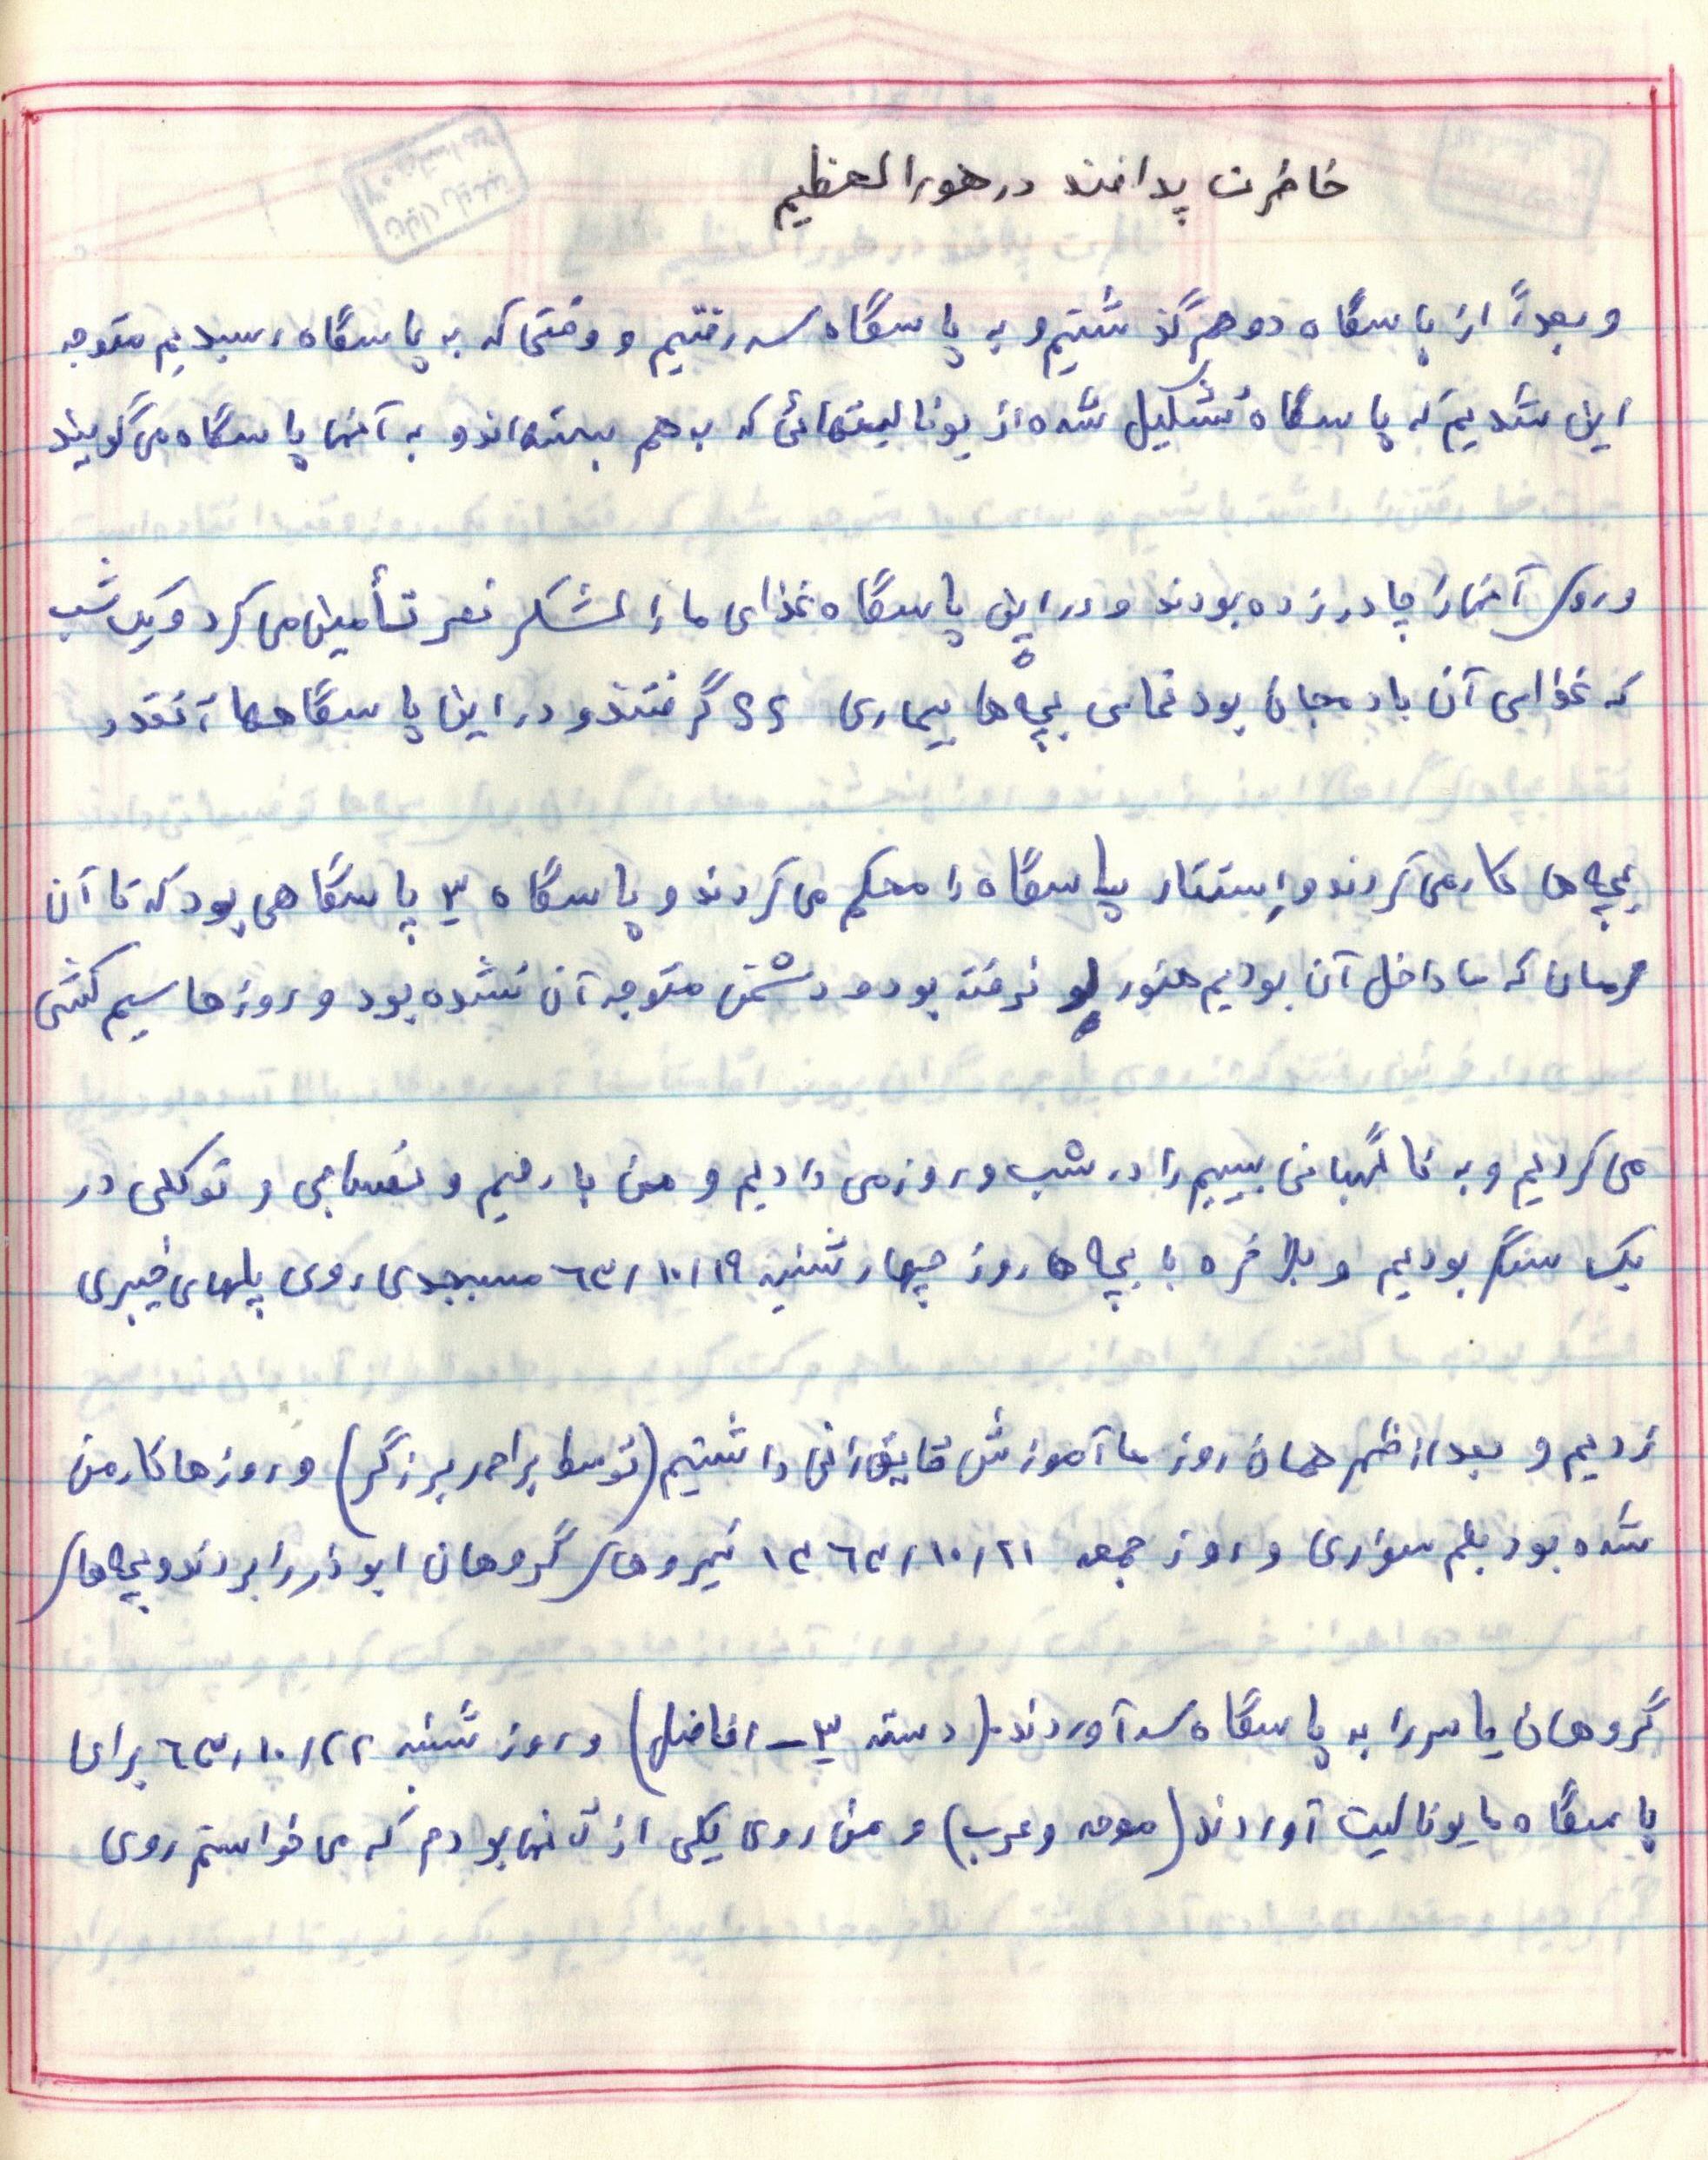 خاطرت پدافند در هورالعظیم
و بعداً از پاسگاه دو هم گذشتیم و به پاسگاه سه رفتیم و وقتی که به پاسگاه رسیدیم متوجه
این شدیم که پاسگاه تشکیل شده از یونالیتهائی که به هم بسته‌اند و به آنها پاسگاه می‌گویند
و روی آنها را چادر زده بودند و در این پاسگاه غذای ما را لشکر نصر تأمین می‌کرد و یک شب
که غذای آن بادمجان بود تمامی بچه‌ها بیماری گرفتند و در این پاسگاهها آنقدر
بچه‌ها کار می‌کردند و استتار پاسگاه را محکم می‌کردند و پاسگاه ۳ پاسگاهی بود که تا آن
زمان که ما داخل آن بودیم هنوز لو نرفته بود و دشمن متوجه آن نشده بود و روزها سیم کشی
می‌کردیم و به نگهبانی بیسیم را در شب و روز می‌دادیم و من با رحیم و نصاجی و توکلی در
یک سنگر بودیم و بلاخره با بچه‌ها روز چهارشنبه ۶۳/۱۰/۱۹ مسجدی روی پلهای خیبری
زدیم و بعد از ظهر همان روز ما آموزش قایق‌رانی داشتیم (توسط برادر برزگر) و روزها کار من
شده بود بلم سواری و روز جمعه ۱۳۶۳/۱۰/۲۱ نیروهای گروهان ابوذر را بردند و بچه‌های
گروهان یاسر را به پاسگاه سه آوردند. (دسته ۳ - افاضل) و روز شنبه ۶۳/۱۰/۲۲ برای
پاسگاه ما یونالیت آوردند (موحد و عرب) و من روی یکی از آنها بودم که می‌خواستم روی